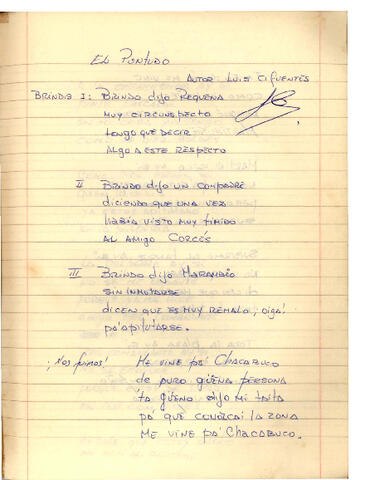 El Puntudo
Autor Luis Cifuentes
Brindis I: Brindo dijo Requena
muy circunspecto
tengo que decir
algo a este respecto
II Brindo dijo un compadre
diciendo que una vez
había visto muy tímido
al amigo Corcés
III Brindo dijo Marambio
sin inmutarse
dicen que es muy remalo, oiga,
pa'apitutarse.
¡Nos fuimos! Me vine pa' Chacabuco
de puro güena persona
'ta güeno dijo mi taita
pa' que conozcai la zona
Me vine pa' Chacabuco.